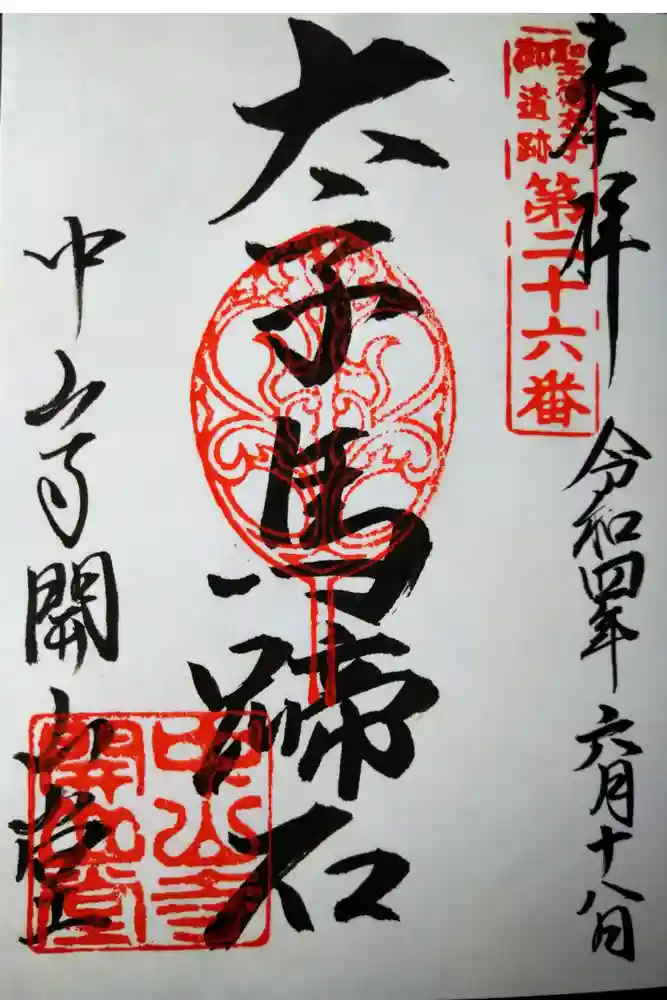 奉拝
令和四年六月十八日
聖徳太子
御遺跡
第二十六番
太子馬蹄石
中山寺開山堂
中山寺
開山堂